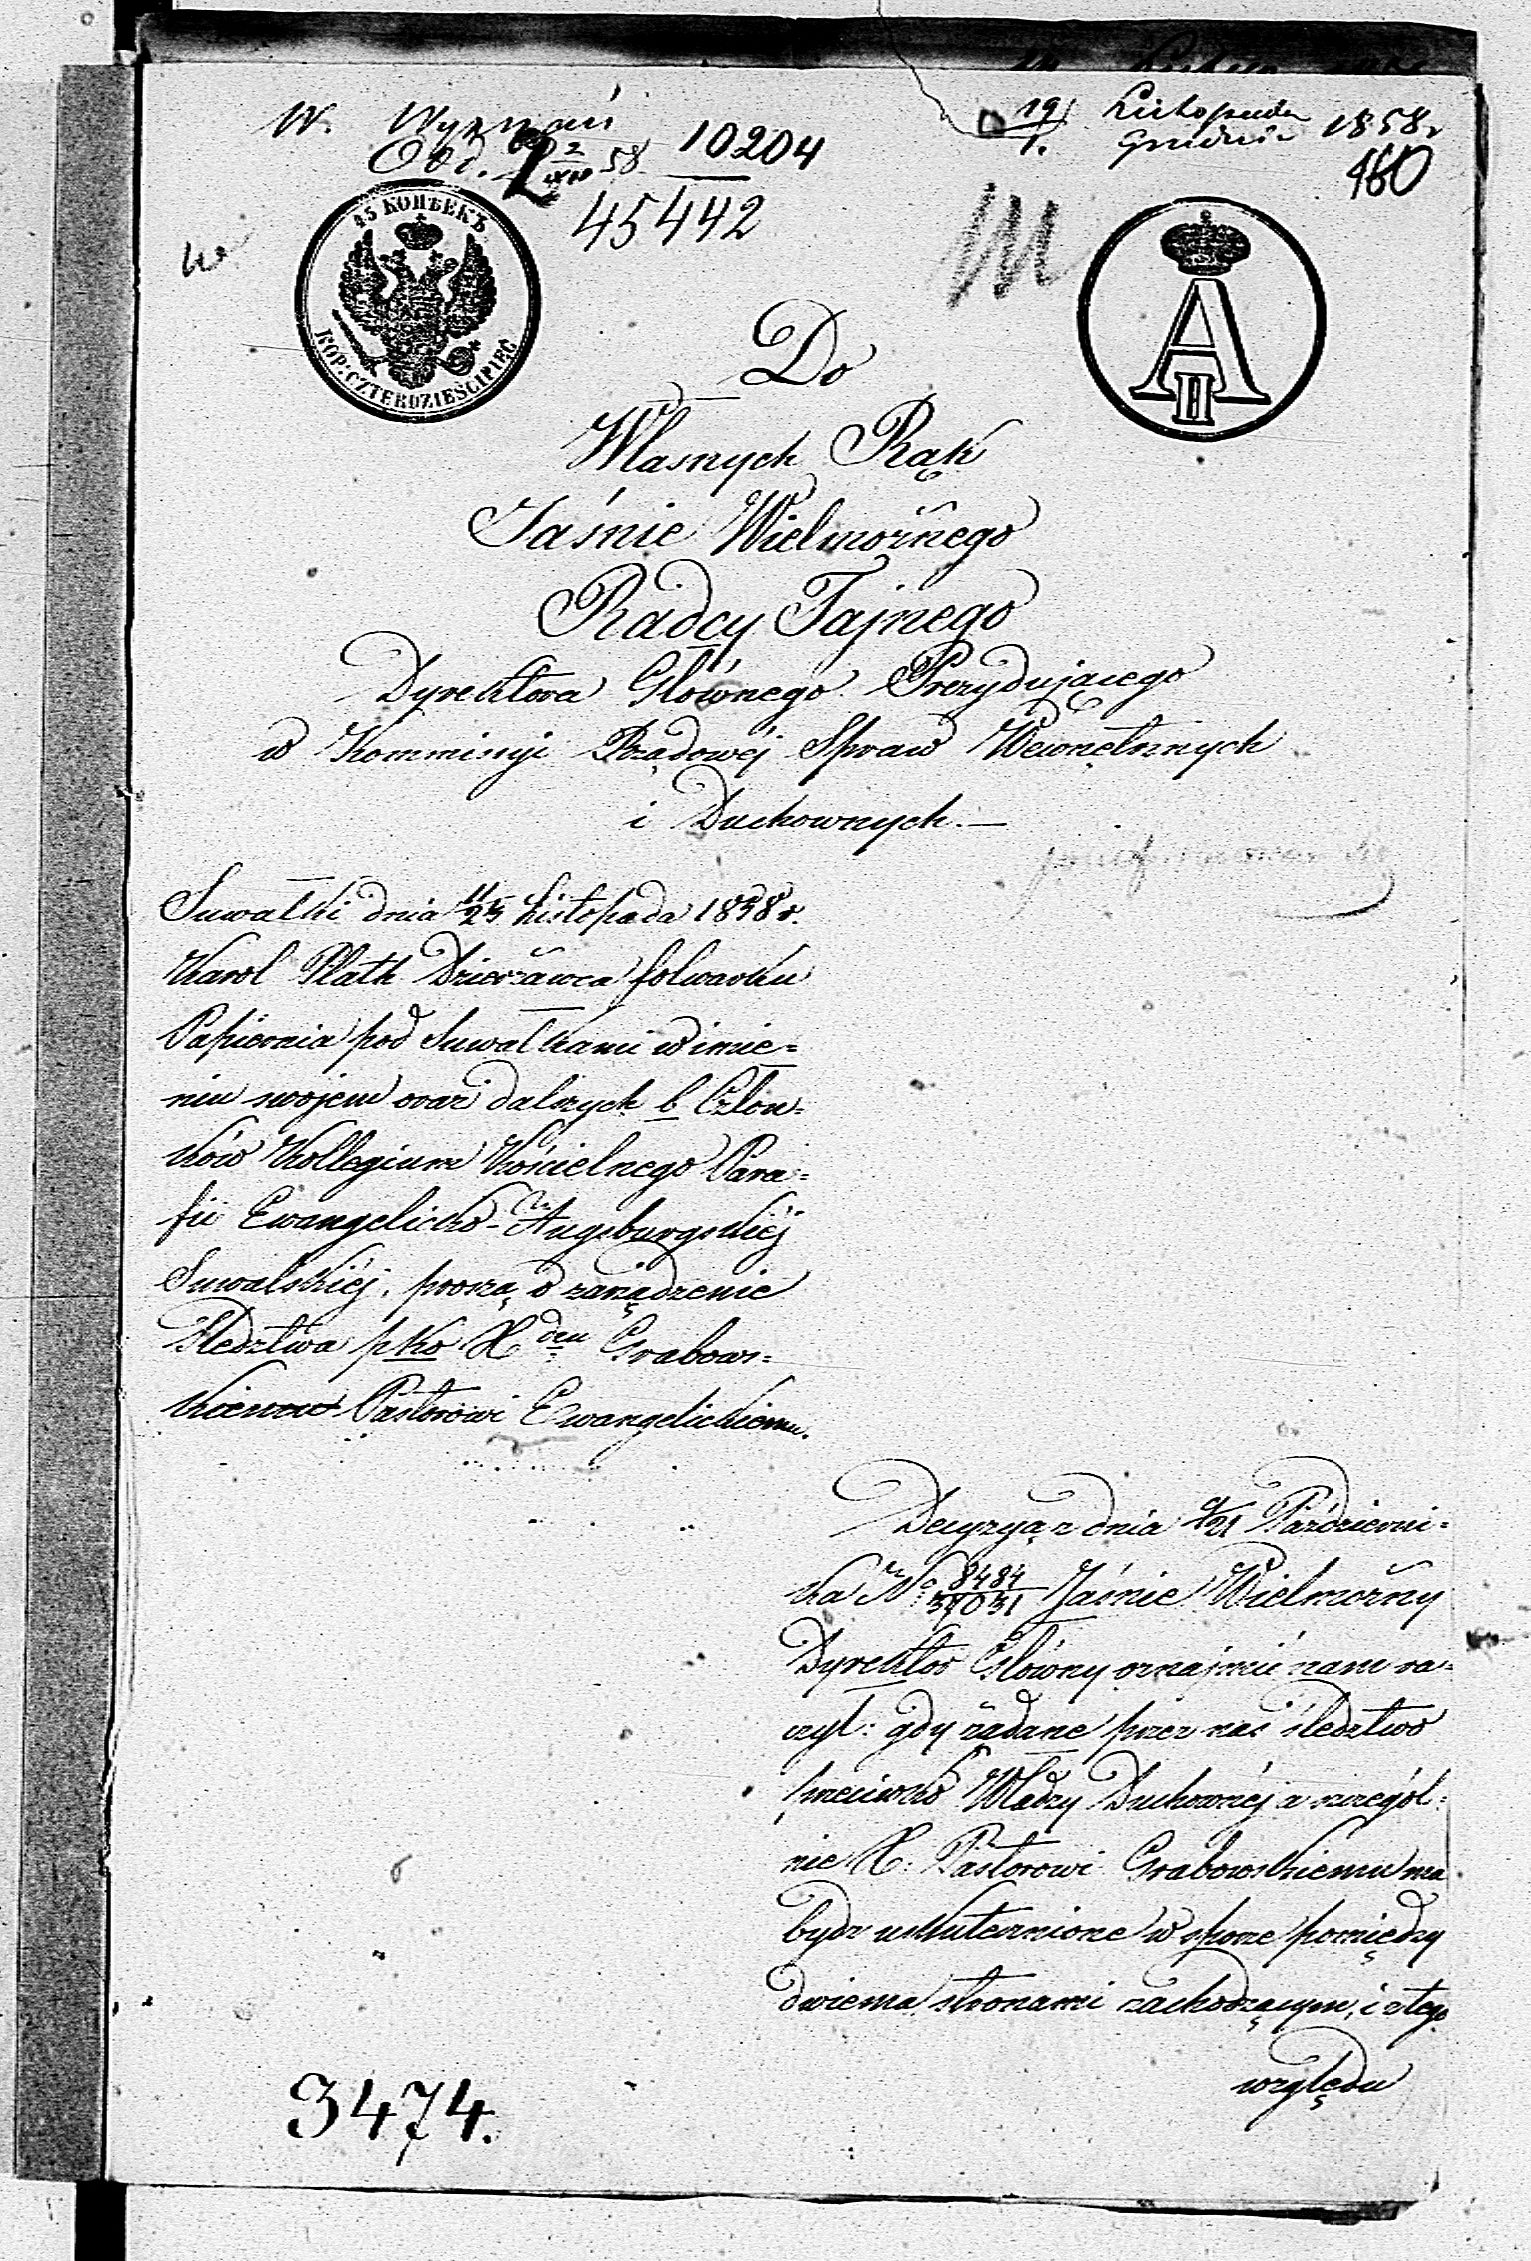 W. Wyznań
19/1. Listopada Grudnia 1858 r
Odd. 2 2/XII 58 10204
45442
160
45 КОПѢЕКЪ
KOP: CZTERDZIEŚCI PIĘĆ
A II
Do
Własnych Rąk
Jaśnie Wielmożnego
Radcy Tajnego
Dyrektora Głównego Prezydującego
w Kommissyi Rządowéj Spraw Wewnętrznych
i Duchownych.—
Suwałki dnia 11/23 Listopada 1858 r.
Karol Plath Dzierżawca folwarku
Papiernia pod Suwałkami w imie=
niu swojem oraz dalszych 6 Człon=
ków Kollegium Kościelnego Para=
fii Ewangelicko-Augsburgskiéj
Suwalskiéj, proszą o zarządzenie
Śledztwa pko X dzu Grabows=
kiemu Pastorowi Ewangelickiemu.
Decyzyą z dnia 9/21 Październi=
ka No 8484/37031 Jaśnie Wielmożny
Dyrektor Główny oznajmić nam ra=
czył: gdy żądane przez nas śledztwo
przeciwko Władzy Duchownéj a szczegól=
nie X: Pastorowi Grabowskiemu ma
bydź uskutecznione w sporze pomiędzy
dwiema stronami zachodzącym, i z tego
względu
3474.